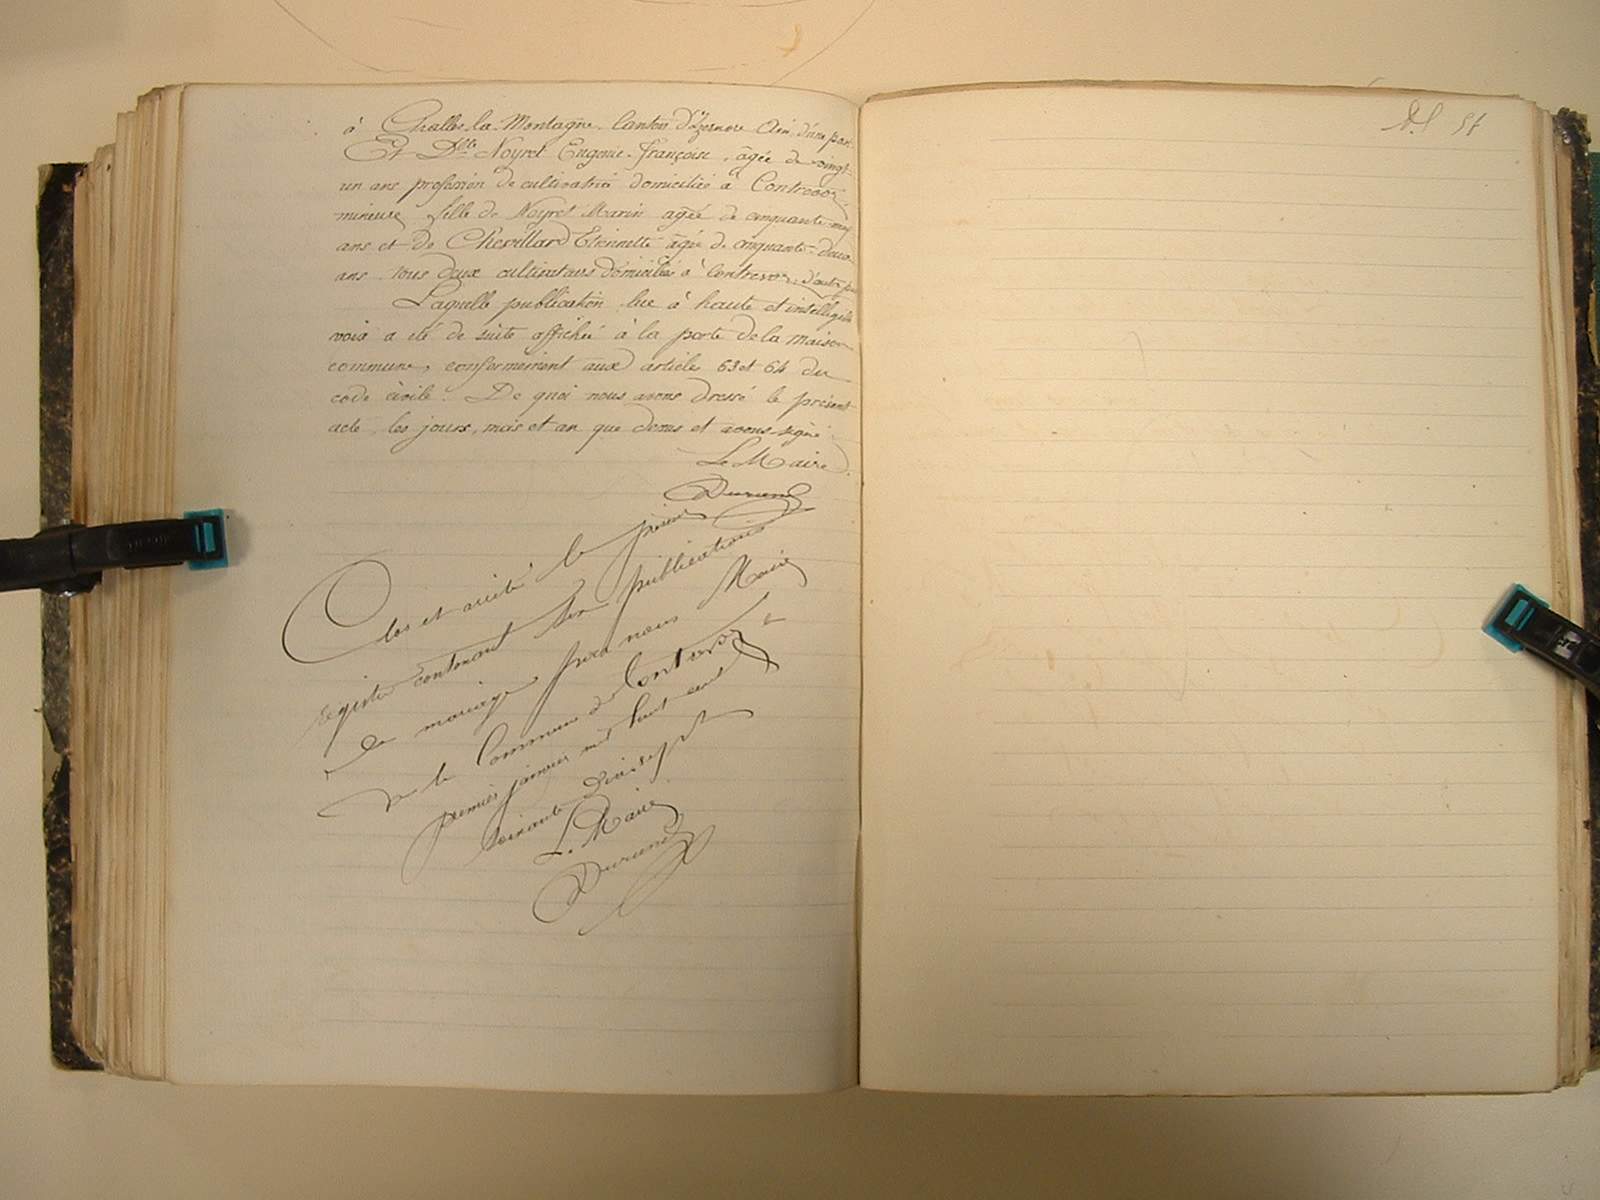 à Challes-la-Montagne canton d'Izernore Ain, d'une part.
Et Dlle Noyret Eugenie-Françoise, agée de vingt-
un ans profession de cultivatrice domiciliée à Contrevoz,
mineure fille de Noyret Marin agée de cinquante-neuf
ans et de Chevillard Etiennette agée de cinquante-deux
ans, tous deux cultivateurs domiciliés à Contrevoz, d'autre part
Laquelle publication lue à haute et intelligible
voix a été de suite affichée à la porte de la maison
commune, conformément aux article 63 et 64 du
code civile. De quoi nous avons dressé le présent
acte, les jours, mois et an que dessus et avons signé.
Le Maire
Clos et arrêté le présent
registre contenant six publications
de mariage par nous Maire
de la Commune de Contrevoz le
premier janvier mil huit cent
soixante dix sept
Le Maire